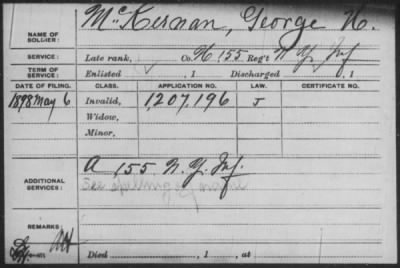 McKernan, George H.
NAME OF
SOLDIER:
SERVICE: Late rank, Co. H, 155 Reg't N. Y. Inf.
TERM OF
SERVICE: Enlisted , 1 Discharged , 1
DATE OF FILING. CLASS. APPLICATION NO. LAW. CERTIFICATE NO.
1898 May 6 Invalid, 1,207,196 J
Widow,
Minor,
A 155 N. Y. Inf.
ADDITIONAL
SERVICES: See spelling of name
REMARKS:
Died , 1 , at